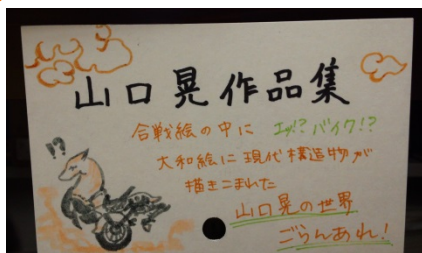 山口晃作品集
合戦絵の中に エッ!? バイク!?
大和絵に現代構造物が
描きこまれた
山口晃の世界
ごらんあれ!
!?